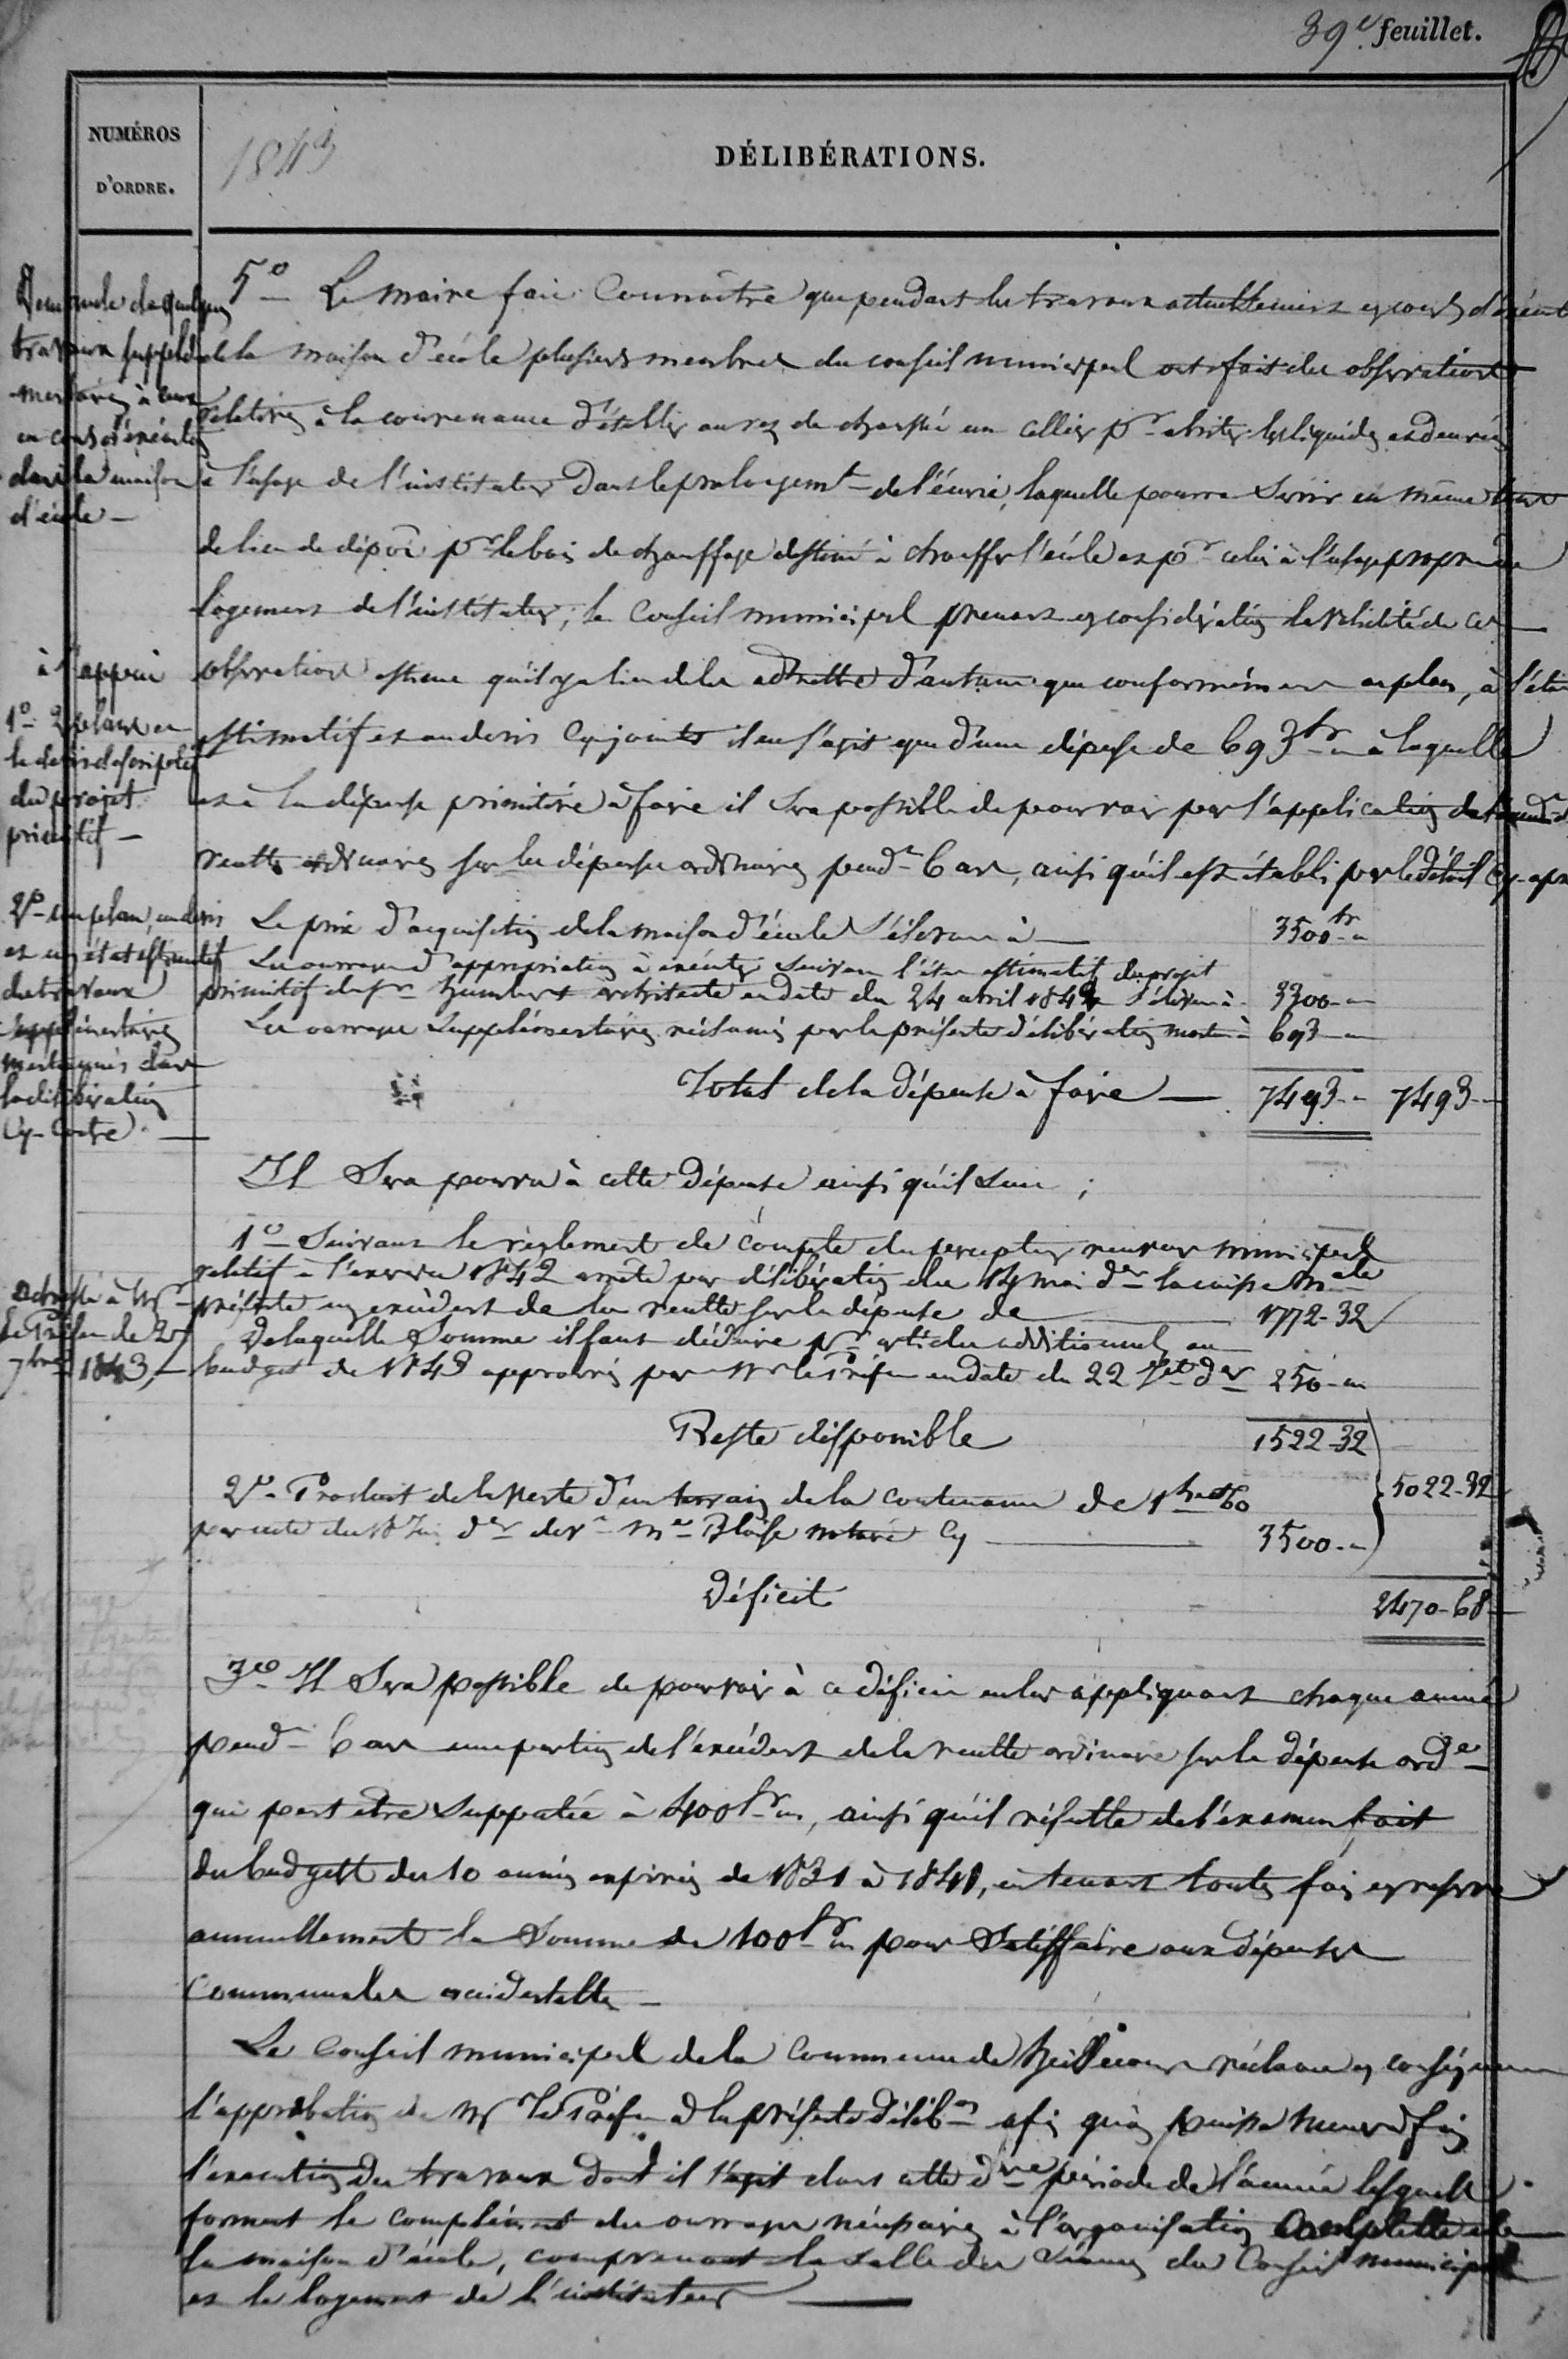 39e feuillet.
NUMÉROS
D'ORDRE.
1843
DÉLIBÉRATIONS.
Demande de quelques
travaux supplé
-mentaires à ceux
en cours d'exécution
dans la maison
d'école —
à l'appui
1o
le devis descriptif
du projet
primitif —
2o un plan, un devis
et un état estimatif
des travaux
supplémentaires
mentionnés dans
la délibération
Cy-Contre —
adressé à Mr
le Préfet le 25
7bre 1843,—
5o — Le maire fait Connaître que pendant les travaux actuellement en cours d'exécut
de la maison d'école plusieurs membres du conseil municipal ont fait des observations
relatives à la convenance d'établir au rez de chaussée un cellier pr abriter les liquides et denrées
à l'usage de l'instituteur dans le prolongemt de l'écurie, laquelle pourra servir en même tems
de lieu de dépôt pr le bois de chauffage destiné à chauffer l'école et pr celui à l'usage propre du
logement de l'instituteur; le Conseil municipal prenant en considération la véridité de ces
observations estime qu'il y a lieu de les admettre d'autant que conformément au plan, à l'état
estimatif et au devis Cy-joints il ne s'agit que d'une dépense de 693fr — à laquelle
et à la dépense primitive à faire il sera possible de pourvoir par l'application de l'excédt
recettes ordinaires sur les dépenses ordinaires pendt 6 ans, ainsi qu'il est établi par le détail Cy-après
Le prix d'acquisition de la maison d'école s'élevant à — 3500fr "
Les ouvrages d'appropriation à exécuter suivant l'état estimatif du projet
primitif de Sr Humbert architecte en date du 24 avril 1842 s'élevant à 3300 — "
Les ouvrages supplémentaires réclamés par la présente délibération montant à 693 — "
Total de la dépense à faire — 7493 — " 7493 —
Il sera pourvu à cette dépense ainsi qu'il suit ;
1o — Suivant le règlement de compte du percepteur receveur municipal
relatif à l'exercice 1842 arrêté par délibération du 14 mai der la caisse Male
présente un excédent de la recette sur la dépense de — 1772-32
De laquelle Somme il faut déduire pr articles additionnels au
budget de 1843 approuvés par Mr le Préfet en date du 22 Jet der 250 — "
Reste disponible 1522-32
2o — Produit de la vente d'un terrain de la contenance de 1 hect 60
par acte du 18 Juin der devt Me Blaise notaire Cy — 3500 — " 5022-32
Déficit 2470-68
3o Il sera possible de pourvoir à ce déficit en lui appliquant chaque année
pendt 6 ans une portion de l'excédent de la recette ordinaire sur la dépense orde
qui peut être supputée à 400fr ", ainsi qu'il résulte de l'examen fait
du budgett des 10 années expirées de 1831 à 1841, en tenant toutes fois en réserve
annuellement la Somme de 100fr " pour Satisfaire aux dépenses
Communales accidentelles —
Le Conseil municipal de la Commune de réclame en conséquence
l'approbation de Mr le Préfet de la présente délibon afin qu'on puisse
l'exécution des travaux dont il s'agit dans cette dre période de l'année lesquels
forment le complément des ouvrages nécessaires à l'organisation Complette de
la maison d'école, comprenant la salle des Séances du Conseil municipal
et le logement de l'instituteur —